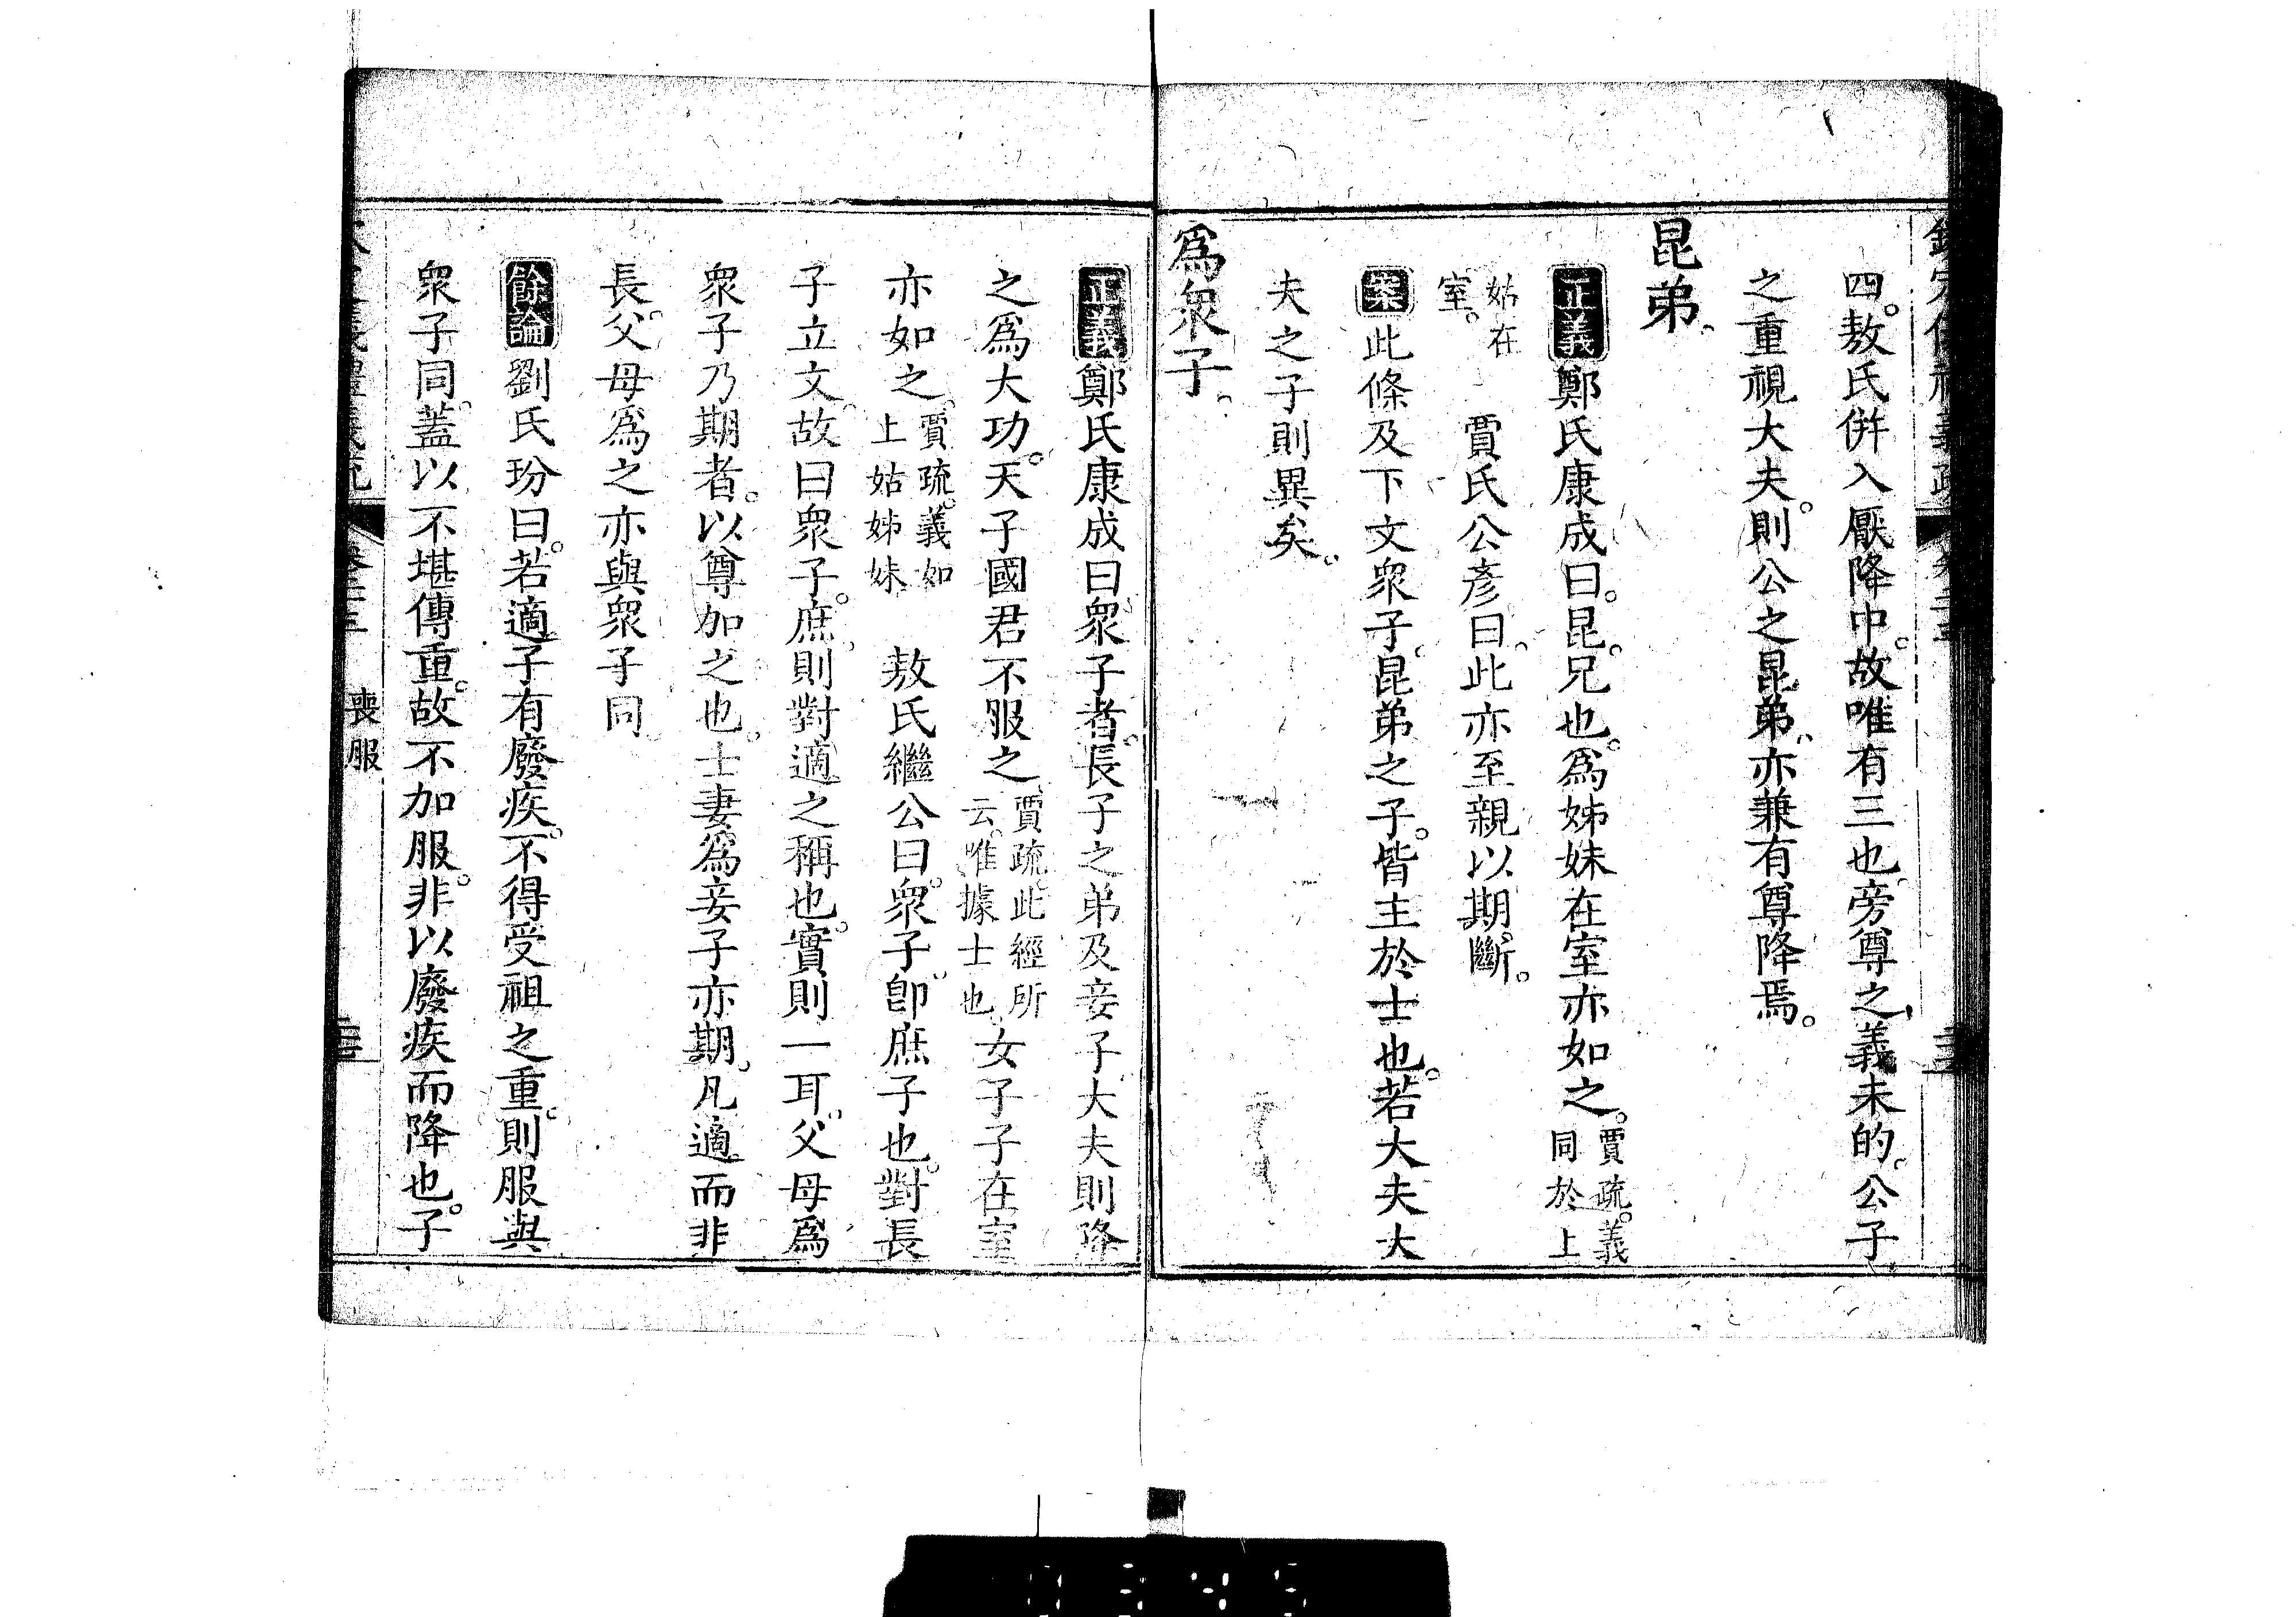 四。敖氏併入厭降中。故唯有三也。旁尊之義未的。公子
之重視大夫。則公之昆弟。亦兼有尊降焉。
昆弟。
正義鄭氏康成曰。昆。兄也。爲姊妹在室亦如之。賈疏。義同於上
姑在室。賈氏公彥曰。此亦至親以期斷。
案此條及下文衆子。昆弟之子。皆主於士也。若大夫大
夫之子則異矣。
爲衆子。
正義鄭氏康成曰。衆子者。長子之弟及妾子大夫則降
之爲大功。天子國君不服之。賈疏。此經所云。唯據士也。女子子在室
亦如之。賈疏。義如上姑姊妹 敖氏繼公曰。衆子。卽庶子也。對長
子立文。故曰衆子。庶。則對適之稱也。實則一耳。父母爲
衆子乃期者。以尊加之也。士妻爲妾子亦期。凡適而非
長。父母爲之亦與衆子同
餘論劉氏玢曰。若適子有廢疾。不得受祖之重。則服與
衆子同。蓋以不堪傳重。故不加服。非以廢疾而降也。子
喪服